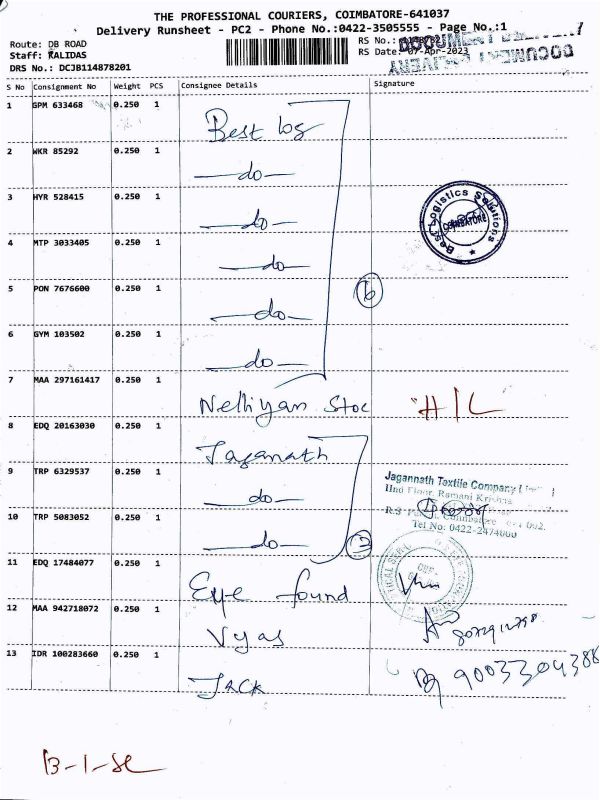 THE PROFESSIONAL COURIERS, COIMBATORE-641037
Delivery Runsheet - PC2 - Phone No.:0422-3505555 - Page No.:1
Route: DB ROAD
Staff: KALIDAS
DRS No.: DCJB114878201
RS No.:
RS Date: 07-Apr-2023
S No Consignment No Weight PCS Consignee Details Signature
1 GPM 633468 0.250 1 Best log
2 WKR 85292 0.250 1 —do—
3 HYR 528415 0.250 1 —do—
4 MTP 3033405 0.250 1 —do—
5 PON 7676600 0.250 1 —do— 6
6 GYM 103502 0.250 1 —do—
7 MAA 297161417 0.250 1 Nelliyan Stoc H/L
8 EDQ 20163030 0.250 1 Jaganath
9 TRP 6329537 0.250 1 —do—
10 TRP 5083052 0.250 1 —do— 3
11 EDQ 17484077 0.250 1 Eye found
12 MAA 942718072 0.250 1 Vyas
13 IDR 100283660 0.250 1 JACK 9003304388
Best Logistics Solutions
COIMBATORE
Jagannath Textile Company
IInd Floor, Ramani Krishna
Coimbatore
Tel No: 0422-2474000